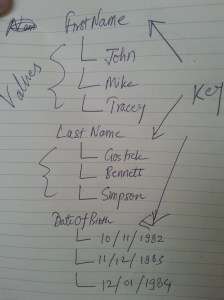 FirstName
John
Mike
Tracey
Values
Key
Last Name
Gostick
Bennett
Simpson
DateOfBirth
10/11/1982
11/12/1983
12/01/1984